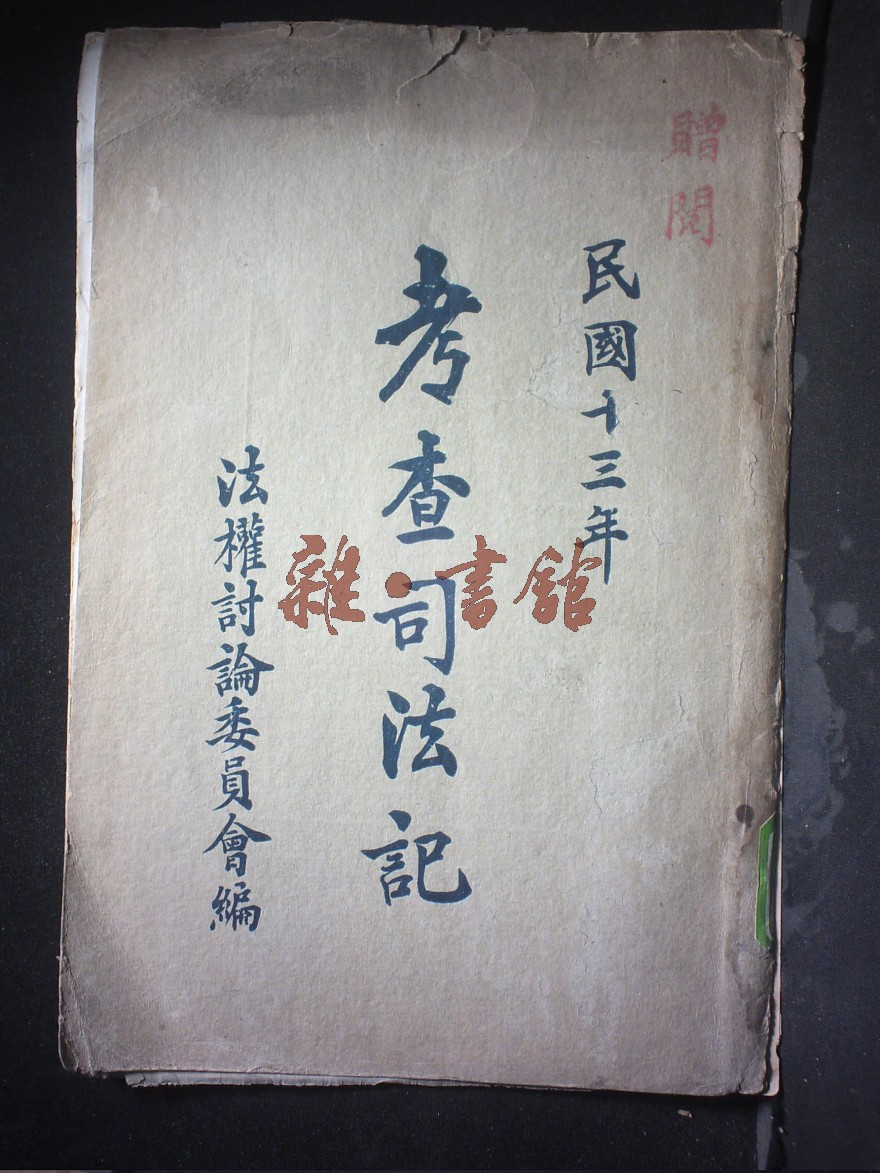 贈閱
民國十三年
考查司法記
法權討論委員會編
雜•書館